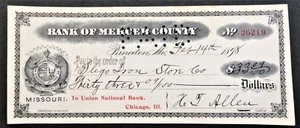 BANK OF MERCER COUNTY
No 26219
Princeton, Mo. Sep 14th 1898
Pay to the order of Sligo Iron Store Co $33 24/100
Thirty three 24/100 Dollars
MISSOURI.
To Union National Bank,
Chicago, Ill.
H F Allen